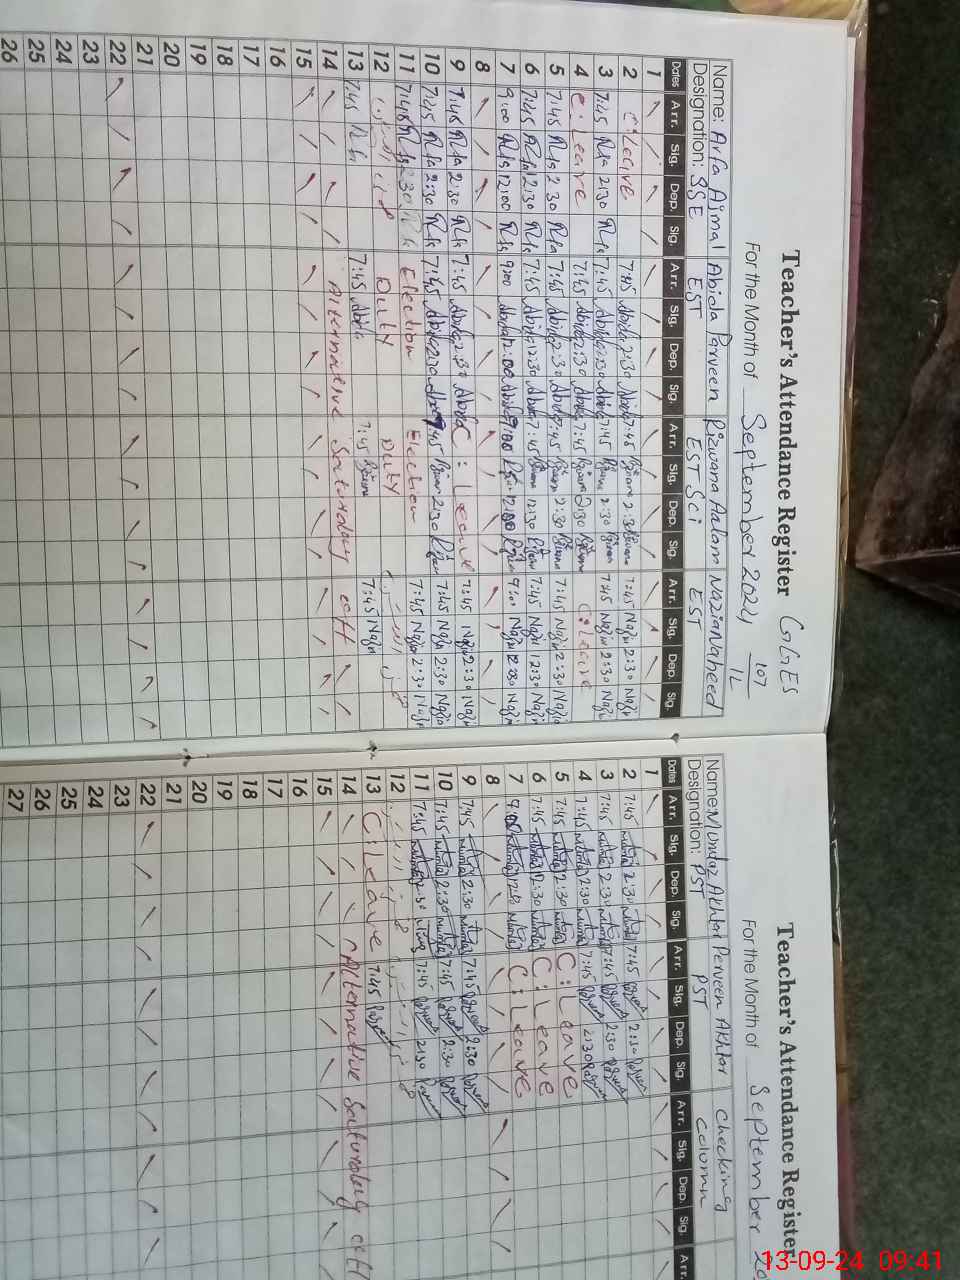 Teacher's Attendance Register GGES 107/1L
For the Month of September 2024
Name: Arfa Ajmal Abida Parveen Rizwana Aalam Nazia Naheed
Designation: SSE EST EST Sci EST
Dates Arr. Sig. Dep. Sig. Arr. Sig. Dep. Sig. Arr. Sig. Dep. Sig. Arr. Sig. Dep. Sig.
1
2 C:Leave 7:45 Abida 2:30 Abida 7:45 2:30 7:45 Nazia 2:30 Nazia
3 7:45 Arfa 2:30 Arfa 7:45 Abida 2:30 Abida 7:45 2:30 7:45 Nazia 2:30 Nazia
4 C:Leave 7:45 Abida 2:30 Abida 7:45 2:30 C:Leave
5 7:45 Arfa 2:30 Arfa 7:45 Abida 2:30 Abida 7:45 2:30 7:45 Nazia 2:30 Nazia
6 7:45 Arfa 12:30 Arfa 7:45 Abida 12:30 Abida 7:45 12:30 7:45 Nazia 12:30 Nazia
7 9:00 Arfa 12:00 Arfa 9:00 Abida 12:00 Abida 9:00 12:00 9:00 Nazia 12:00 Nazia
8
9 7:45 Arfa 2:30 Arfa 7:45 Abida 2:30 Abida C:Leave 7:45 Nazia 2:30 Nazia
10 7:45 Arfa 2:30 Arfa 7:45 Abida 2:30 Abida 7:45 2:30 7:45 Nazia 2:30 Nazia
11 7:45 Arfa 2:30 Arfa Election Election 7:45 Nazia 2:30 Nazia
12 Duty Duty
13 7:45 Arfa 7:45 Abida 7:45 7:45 Nazia
14 Alternative Saturday off
15
16
17
18
19
20
21
22
23
24
25
26
Teacher's Attendance Register
For the Month of September 20
Name: Mumtaz Akhtar Perveen Akhtar Checking
Designation: PST PST Column
Dates Arr. Sig. Dep. Sig. Arr. Sig. Dep. Sig. Arr. Sig. Dep. Sig. Arr.
1
2 7:45 Mumtaz 2:30 Mumtaz 7:45 2:30
3 7:45 Mumtaz 2:30 Mumtaz 7:45 2:30
4 7:45 Mumtaz 2:30 Mumtaz 7:45 2:30
5 7:45 Mumtaz 2:30 Mumtaz C:Leave
6 7:45 Mumtaz 12:30 Mumtaz C:Leave
7 9:00 Mumtaz 12:00 Mumtaz C:Leave
8
9 7:45 Mumtaz 2:30 Mumtaz 7:45 2:30
10 7:45 Mumtaz 2:30 Mumtaz 7:45 2:30
11 7:45 Mumtaz 2:30 Mumtaz 7:45 2:30
12
13 C:Leave 7:45
14 Alternative Saturday off
15
16
17
18
19
20
21
22
23
24
25
26
27
13-09-24 09:41